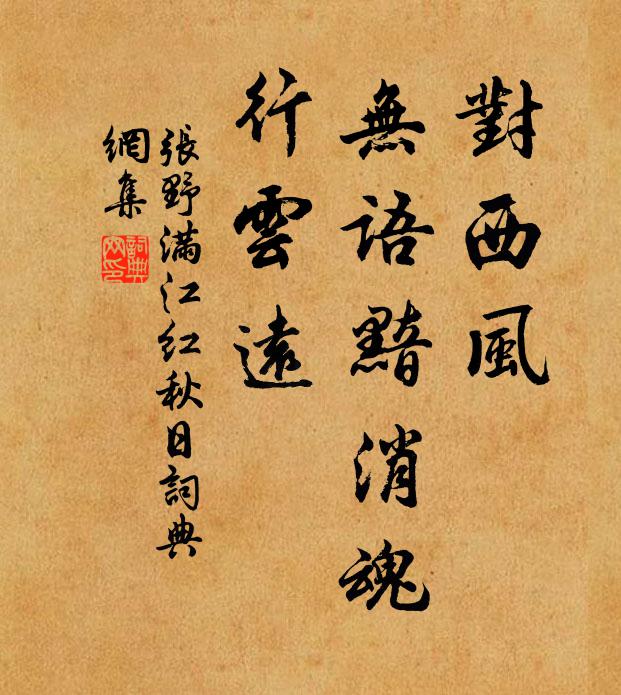 對西風
無語黯消魂
行雲遠
張野滿江红秋日詞典
網集
詞典
网印